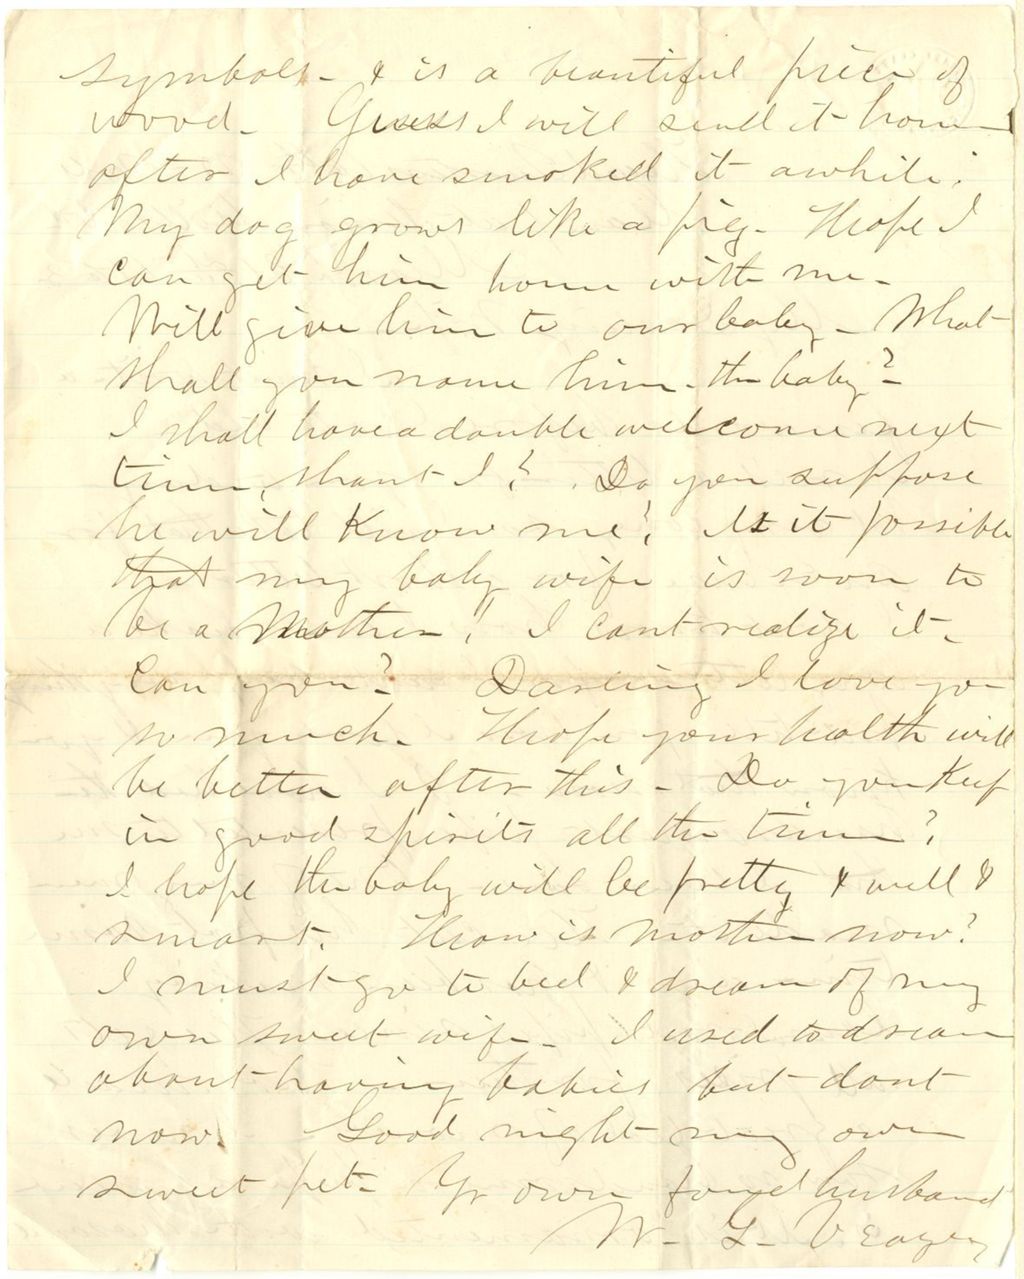 symbols - & is a beautiful piece of
wood - Guess I will send it home
after I have smoked it awhile.
My dog grows like a pig - Hope I
can get him home with me -
Will give him to our baby - What
shall you name him - the baby? -
I shall have a double welcome next
time, shant I? Do you suppose
he will know me? Is it possible
that my baby wife is soon to
be a Mother! I cant realize it -
Can you? Darling I love you
so much - Hope your health will
be better after this - Do you keep
in good spirits all the time?
I hope the baby will be pretty & well &
smart. How is mother now?
I must go to bed & dream of my
own sweet wife - I used to dream
about having babies but dont
now. Good night my own
sweet pet - Yr own fond husband
W - G - Veazey